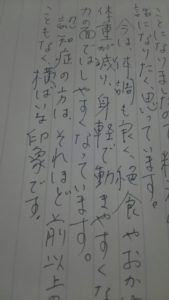 ことになりましたので
話になりたく思っています。
今は体調も良く、絶食やおか
体重が減り、身軽で動きやすくな
力の面ではしやすくなっています。
認知症の方は、それほど前以上の
こともなく横ばいな印象です。